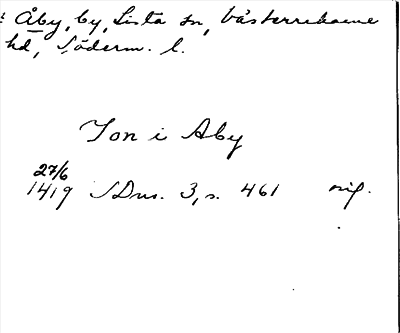 Åby, by, Lista sn, Västerrekarne
hd, Söderm. l.
Jon i Aby
27/6
1419 SDns. 3, s. 461 orig.